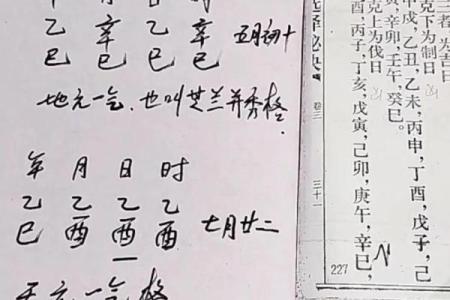 乙 辛 乙 辛 五月初十
巳 巳 巳 巳
地元一气.也叫芝兰并秀格.
年 月 日 时
乙 乙 乙 乙
巳 酉 酉 酉 七月廿二
天元一气 格
三者为吉日
克下为制日
甲戌,乙丑,乙未,丙申,丁酉,戊子,己
寅,辛卯,壬午,癸巳。
克上为伐日
酉,丙子,丁亥,戊寅,己卯,庚午,辛巳,
选择秘诀
卷三
三十一
227